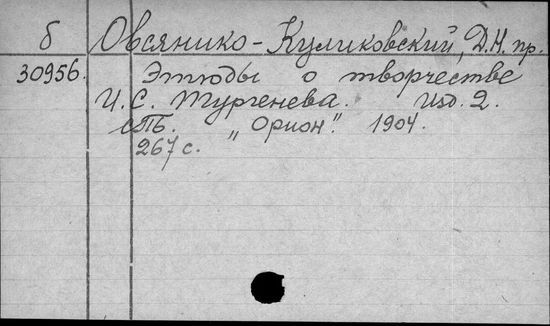 б Овсянико-Куликовский, Д.Н. пр.
30956. Этюды о творчестве
И.С. Тургенева. Изд. 2.
СПБ. „Орион". 1904.
267 с.